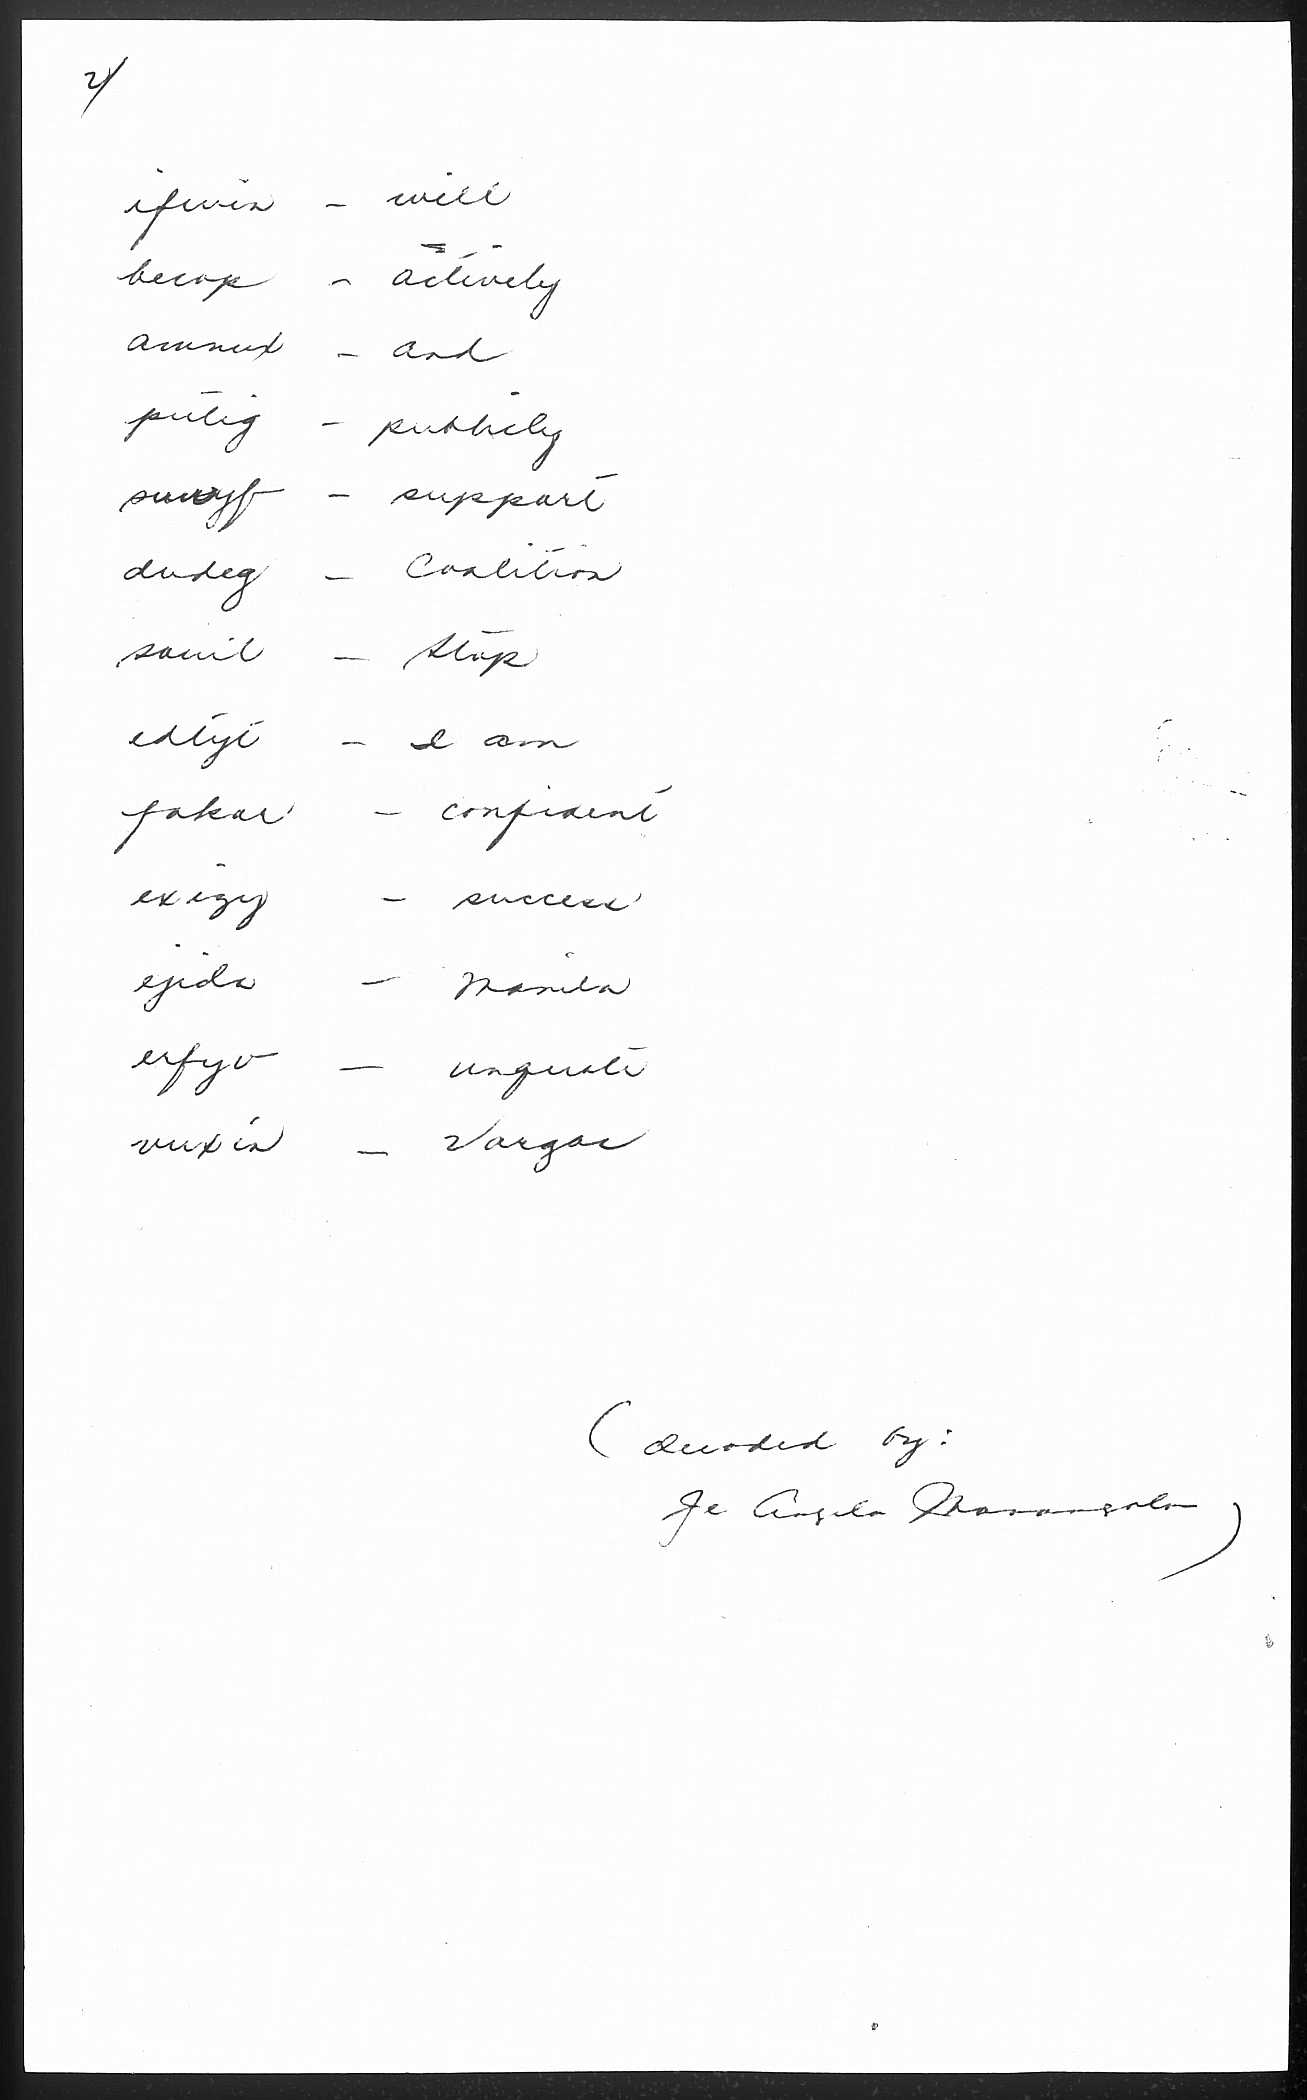 2/
ifwin - will
becop - actively
amnux - and
putig - publicly
suwyf - support
dudeg - Coalition
sowil - Stop
edtyt - I am
fakar - confident
exizy - success
ejida - Manila
erfyv - unquote
vuxin - Vargas
(decoded by:
Je Angela )